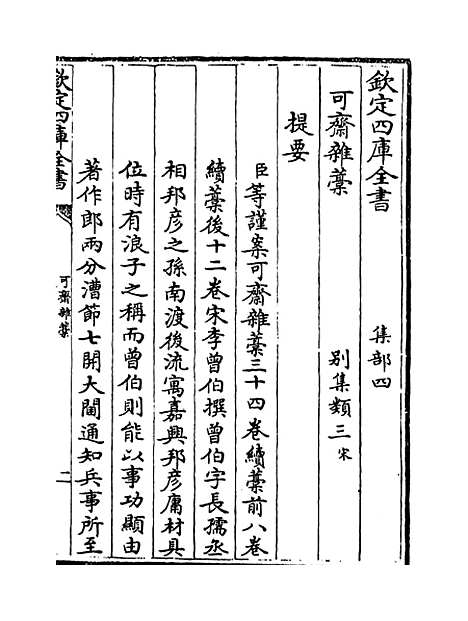 欽定四庫全書 集部四
可齋雜藁 別集類三宋
提要
臣等謹案可齋雜藁三十四卷續藁前八卷
續藁後十二卷宋李曾伯撰曾伯字長孺丞
相邦彦之孫南渡後流寓嘉興邦彦庸材具
位時有浪子之稱而曾伯則能以事功顯由
著作郎兩分漕節七開大閫通知兵事所至
欽定四庫全書
可齋雜藁
二